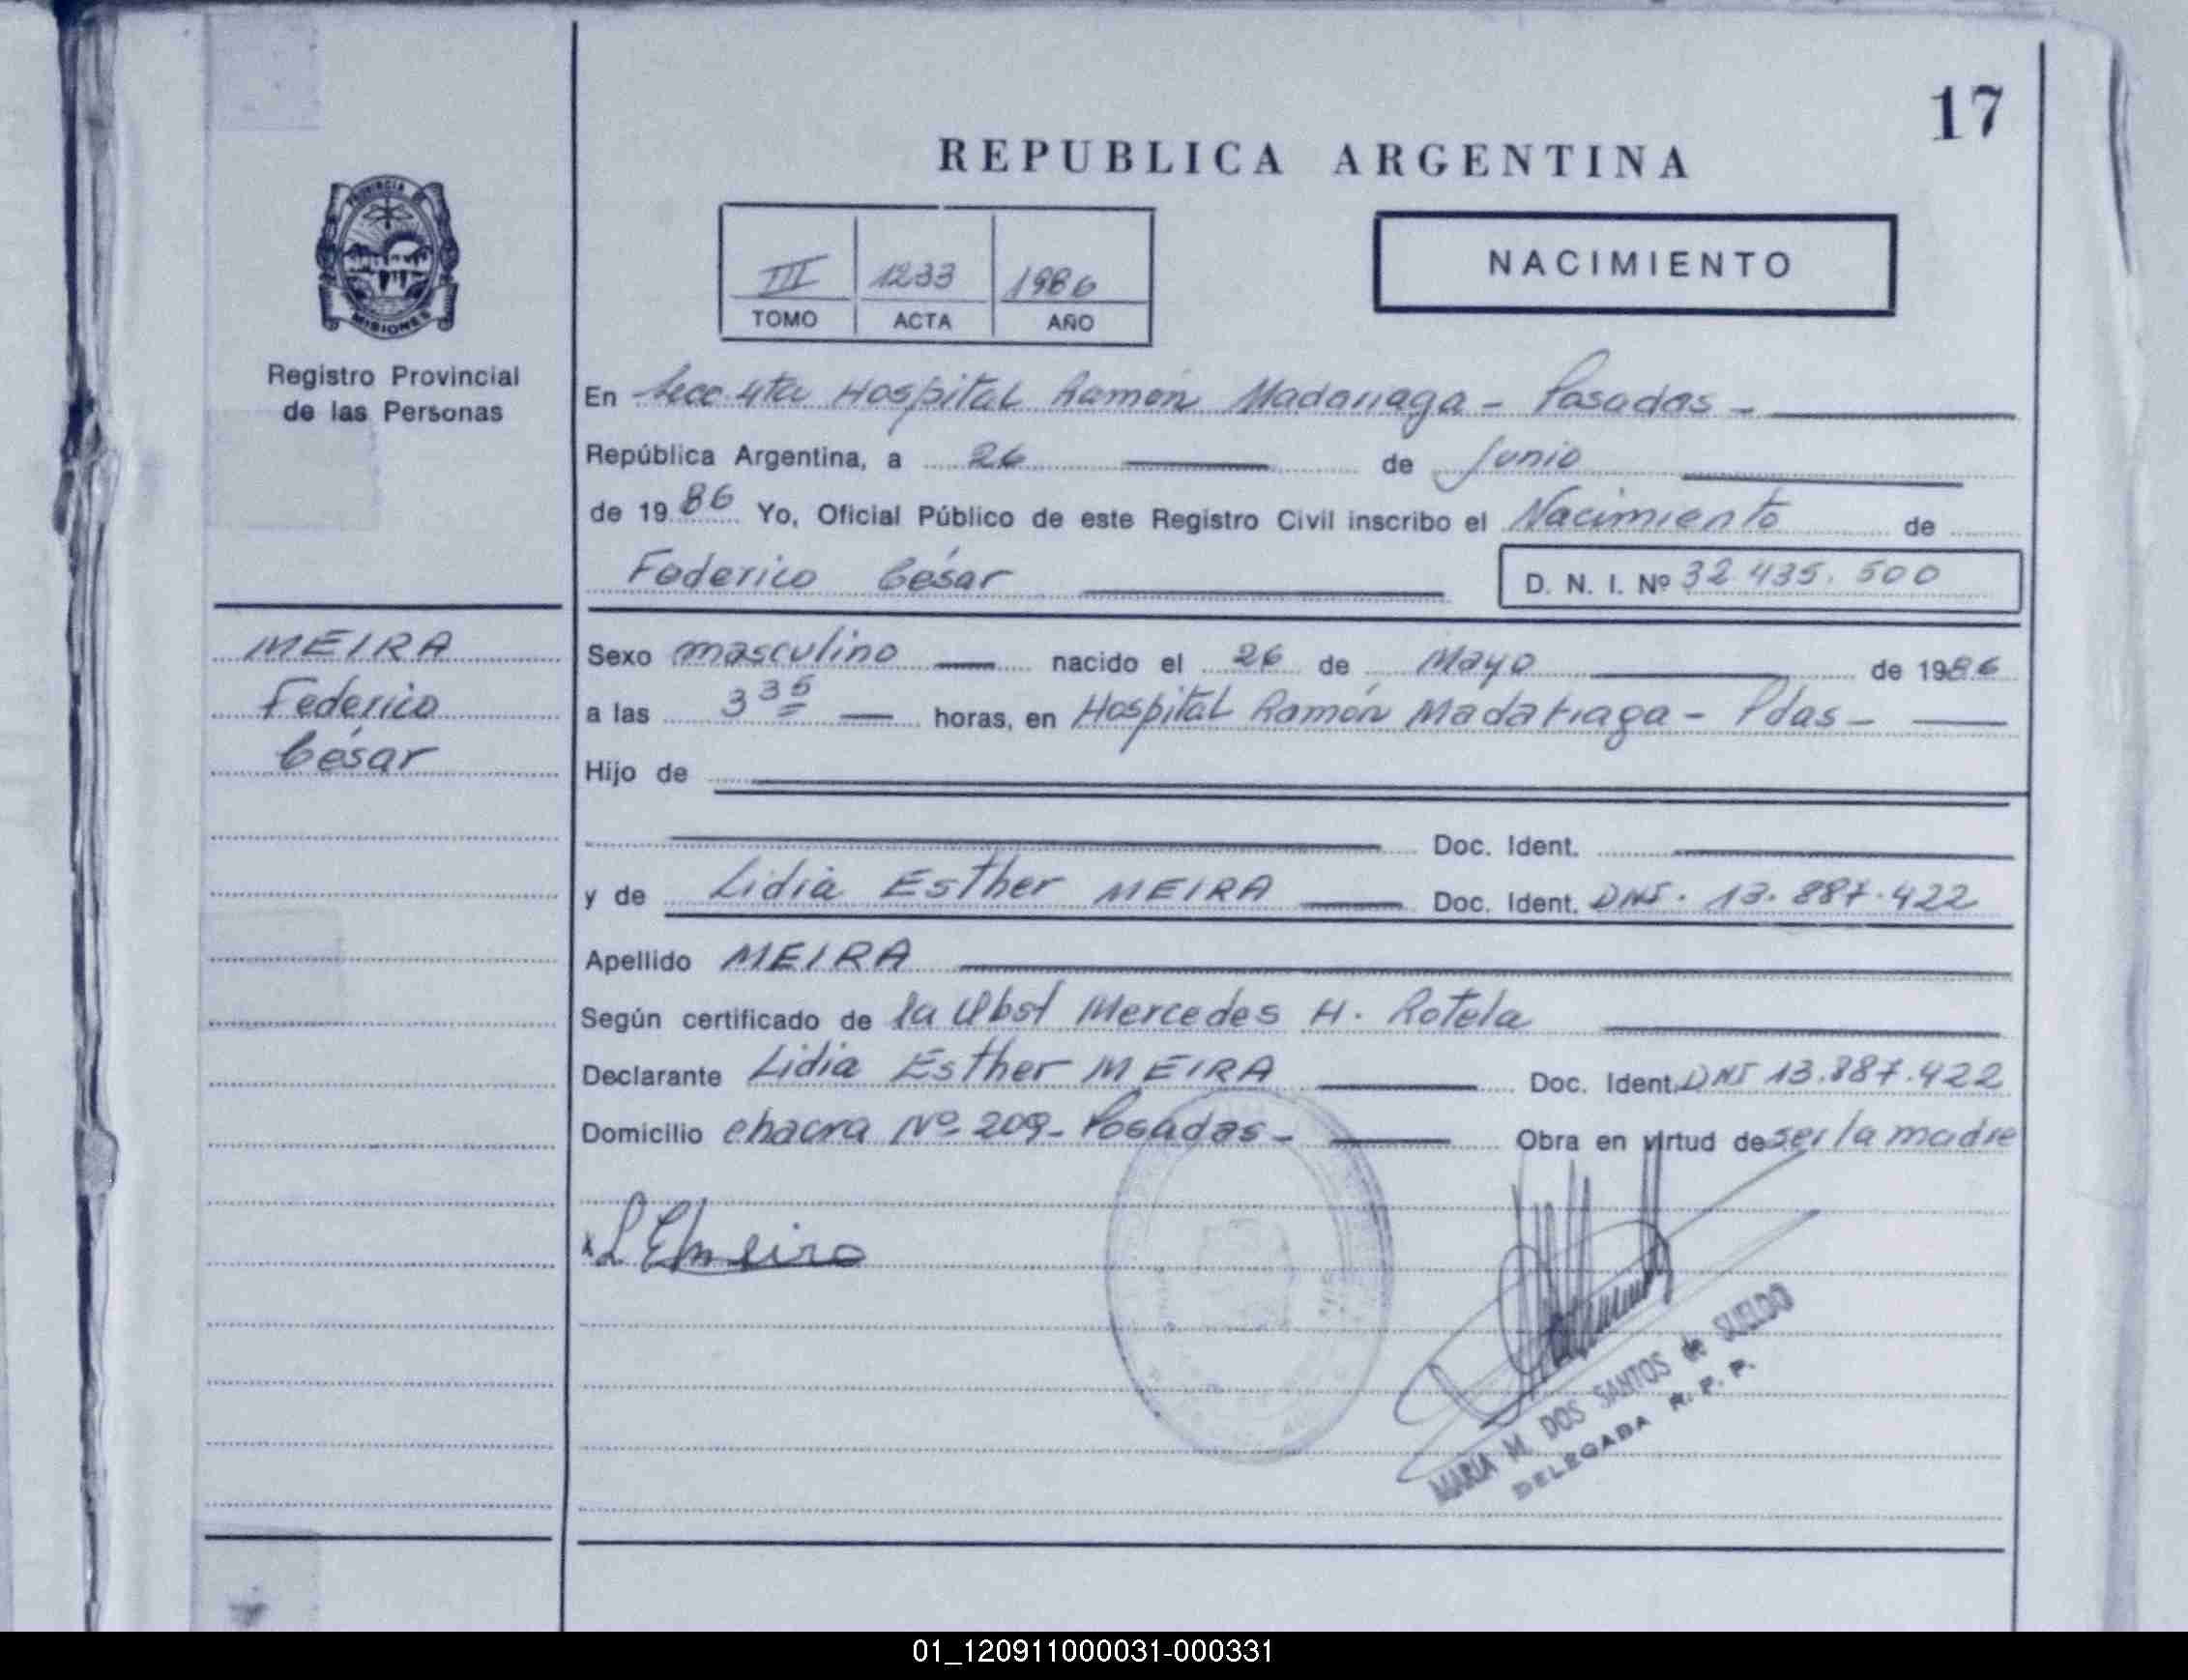 17
REPUBLICA ARGENTINA
III 1233 1986
TOMO ACTA AÑO
NACIMIENTO
PROVINCIA DE
MISIONES
Registro Provincial
de las Personas
En Secc 4ta Hospital Ramón Madariaga - Posadas -
República Argentina, a 26 de Junio
de 1986 Yo, Oficial Público de este Registro Civil inscribo el Nacimiento de
Federico César D. N. I. Nº 32.435.500
MEIRA
Federico
César
Sexo masculino nacido el 26 de Mayo de 1986
a las 3 35 horas, en Hospital Ramón Madariaga - Pdas -
Hijo de
Doc. Ident.
y de Lidia Esther MEIRA Doc. Ident. DNI. 13.887.422
Apellido MEIRA
Según certificado de la Obst Mercedes H. Rotela
Declarante Lidia Esther MEIRA Doc. Ident. DNI 13.887.422
Domicilio chacra Nº 209 - Posadas - Obra en virtud de ser la madre
x L E Meira
MARIA M. DOS SANTOS de SUELDO
DELEGADA R. P. P.
01_120911000031-000331